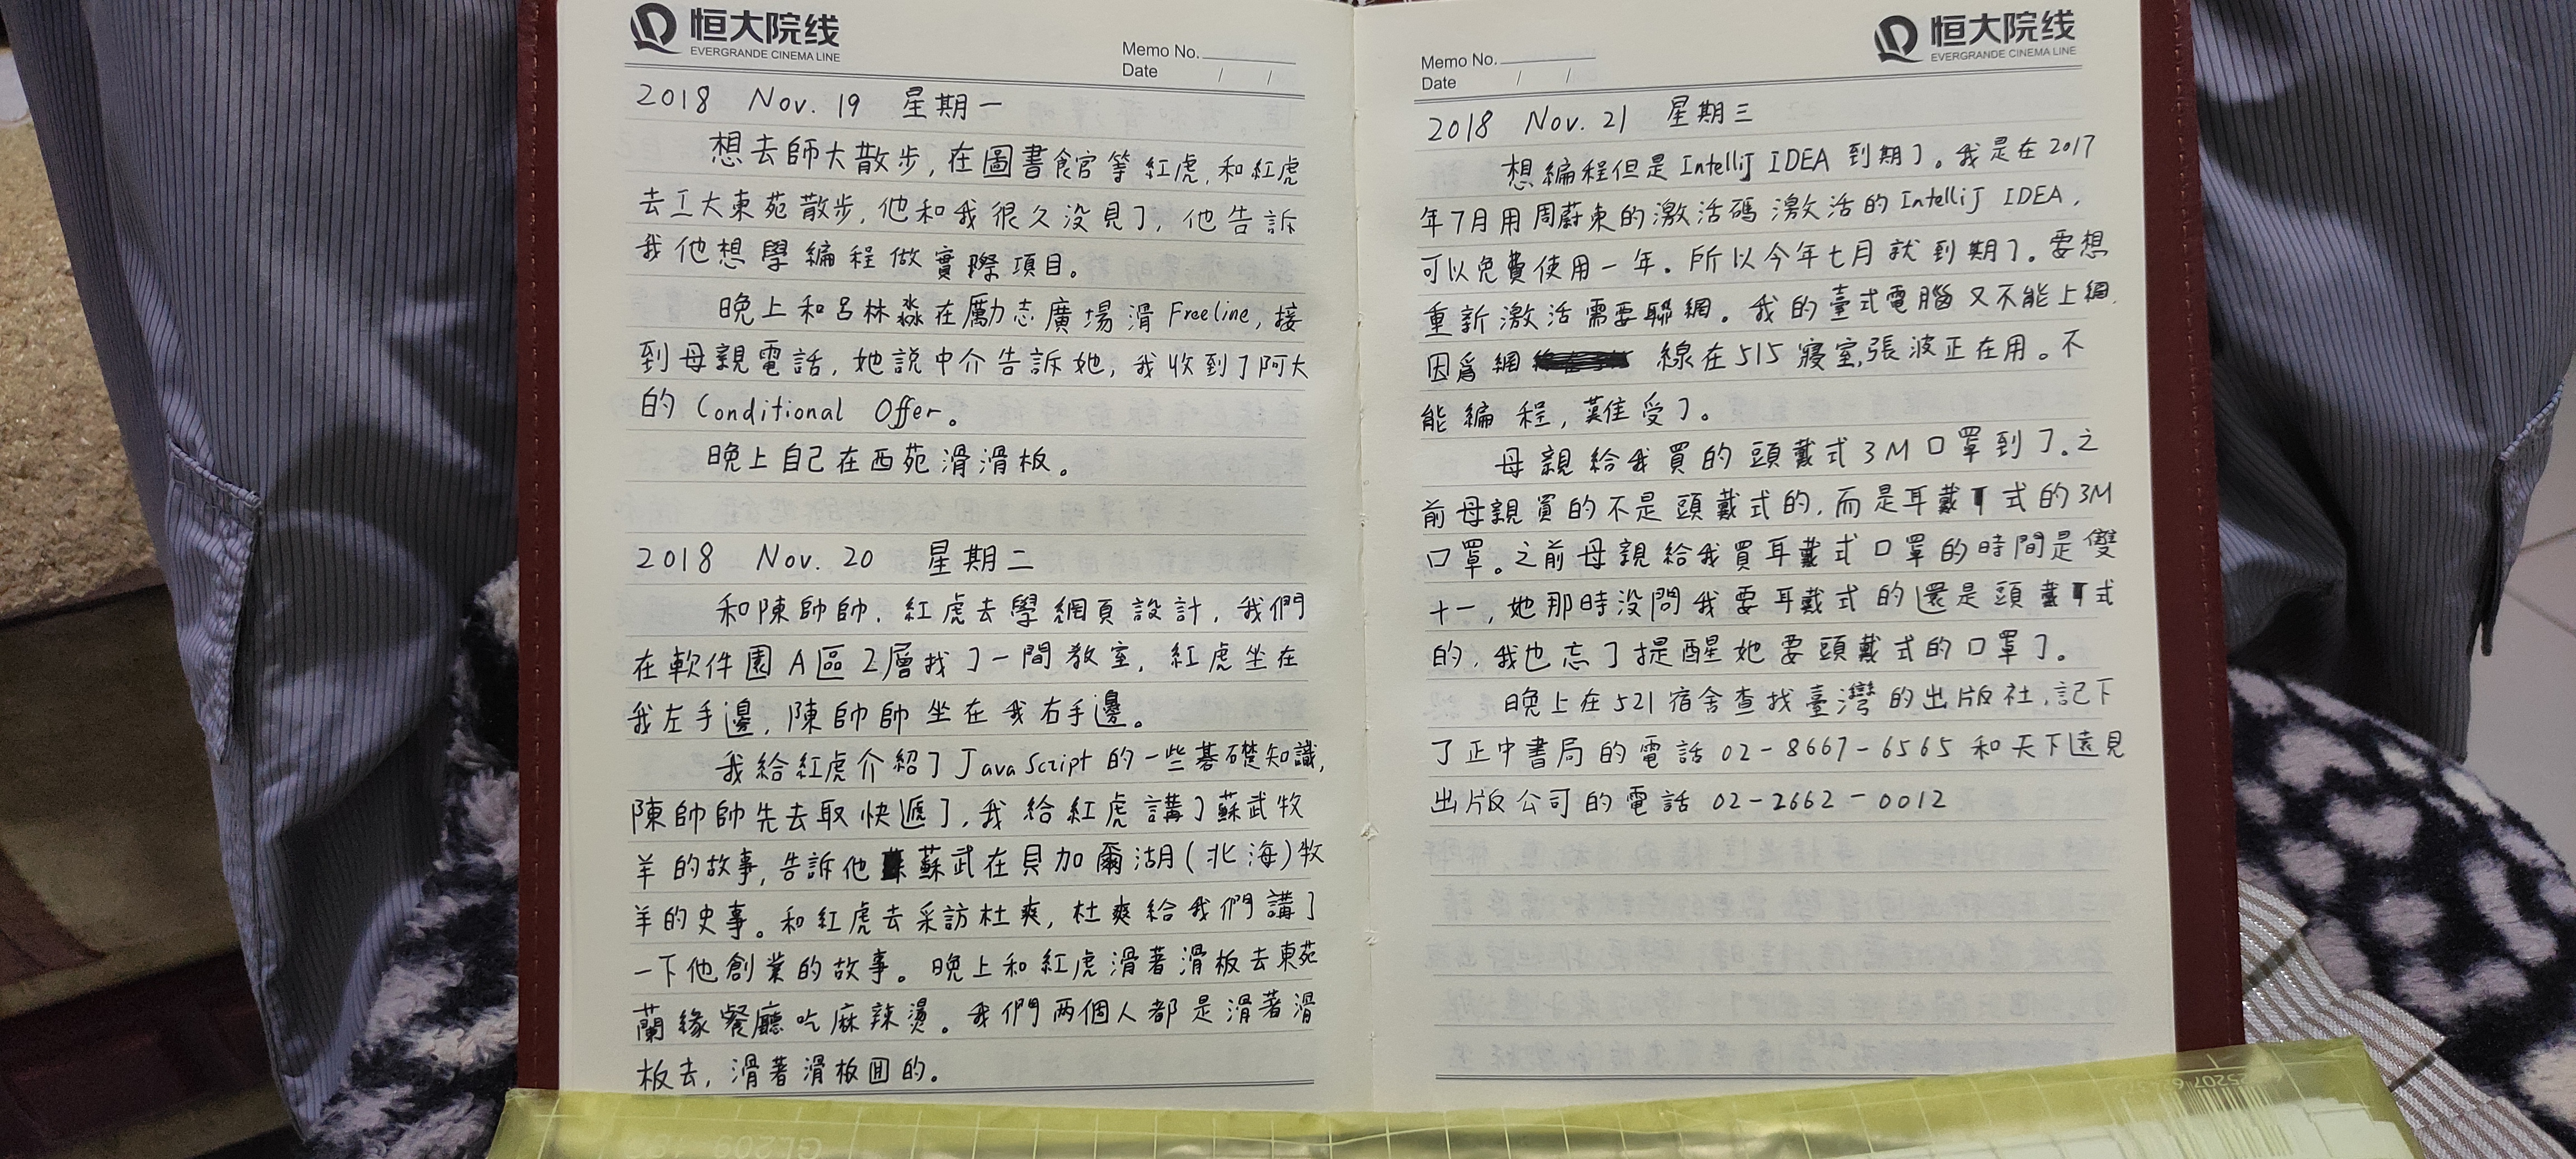 恒大院线
EVERGRANDE CINEMA LINE
Memo No.
Date / /
2018 Nov. 19 星期一
想去師大散步,在圖書館等紅虎,和紅虎
去工大東苑散步,他和我很久没見了,他告訴
我他想學編程做實際項目。
晚上和吕林淼在勵志廣場滑Freeline,接
到母親電話,她説中介告訴她,我收到了阿大
的Conditional Offer。
晚上自己在西苑滑滑板。
2018 Nov. 20 星期二
和陳帥帥,紅虎去學網頁設計,我們
在軟件園A區2層找了一間教室,紅虎坐在
我左手邊,陳帥帥坐在我右手邊。
我給紅虎介紹了JavaScript的一些基礎知識,
陳帥帥先去取快遞了,我給紅虎講了蘇武牧
羊的故事,告訴他蘇武在貝加爾湖(北海)牧
羊的史事。和紅虎去采訪杜爽,杜爽給我們講了
一下他創業的故事。晚上和紅虎滑著滑板去東苑
蘭緣餐廳吃麻辣燙。我們两個人都是滑著滑
板去,滑著滑板回的。
恒大院线
EVERGRANDE CINEMA LINE
Memo No.
Date / /
2018 Nov. 21 星期三
想編程但是IntelliJ IDEA到期了。我是在2017
年7月用周蔚東的激活碼激活的IntelliJ IDEA,
可以免費使用一年.所以今年七月就到期了.要想
重新激活需要聯網。我的臺式電腦又不能上網,
因爲網 線在515寢室,張波正在用。不
能編程,難受了。
母親給我買的頭戴式3M口罩到了.之
前母親買的不是頭戴式的,而是耳戴式的3M
口罩。之前母親給我買耳戴式口罩的時間是雙
十一,她那時没問我要耳戴式的還是頭戴式
的,我也忘了提醒她要頭戴式的口罩了。
晚上在521宿舍查找臺灣的出版社,記下
了正中書局的電話02-8667-6565和天下遠見
出版公司的電話02-2662-0012